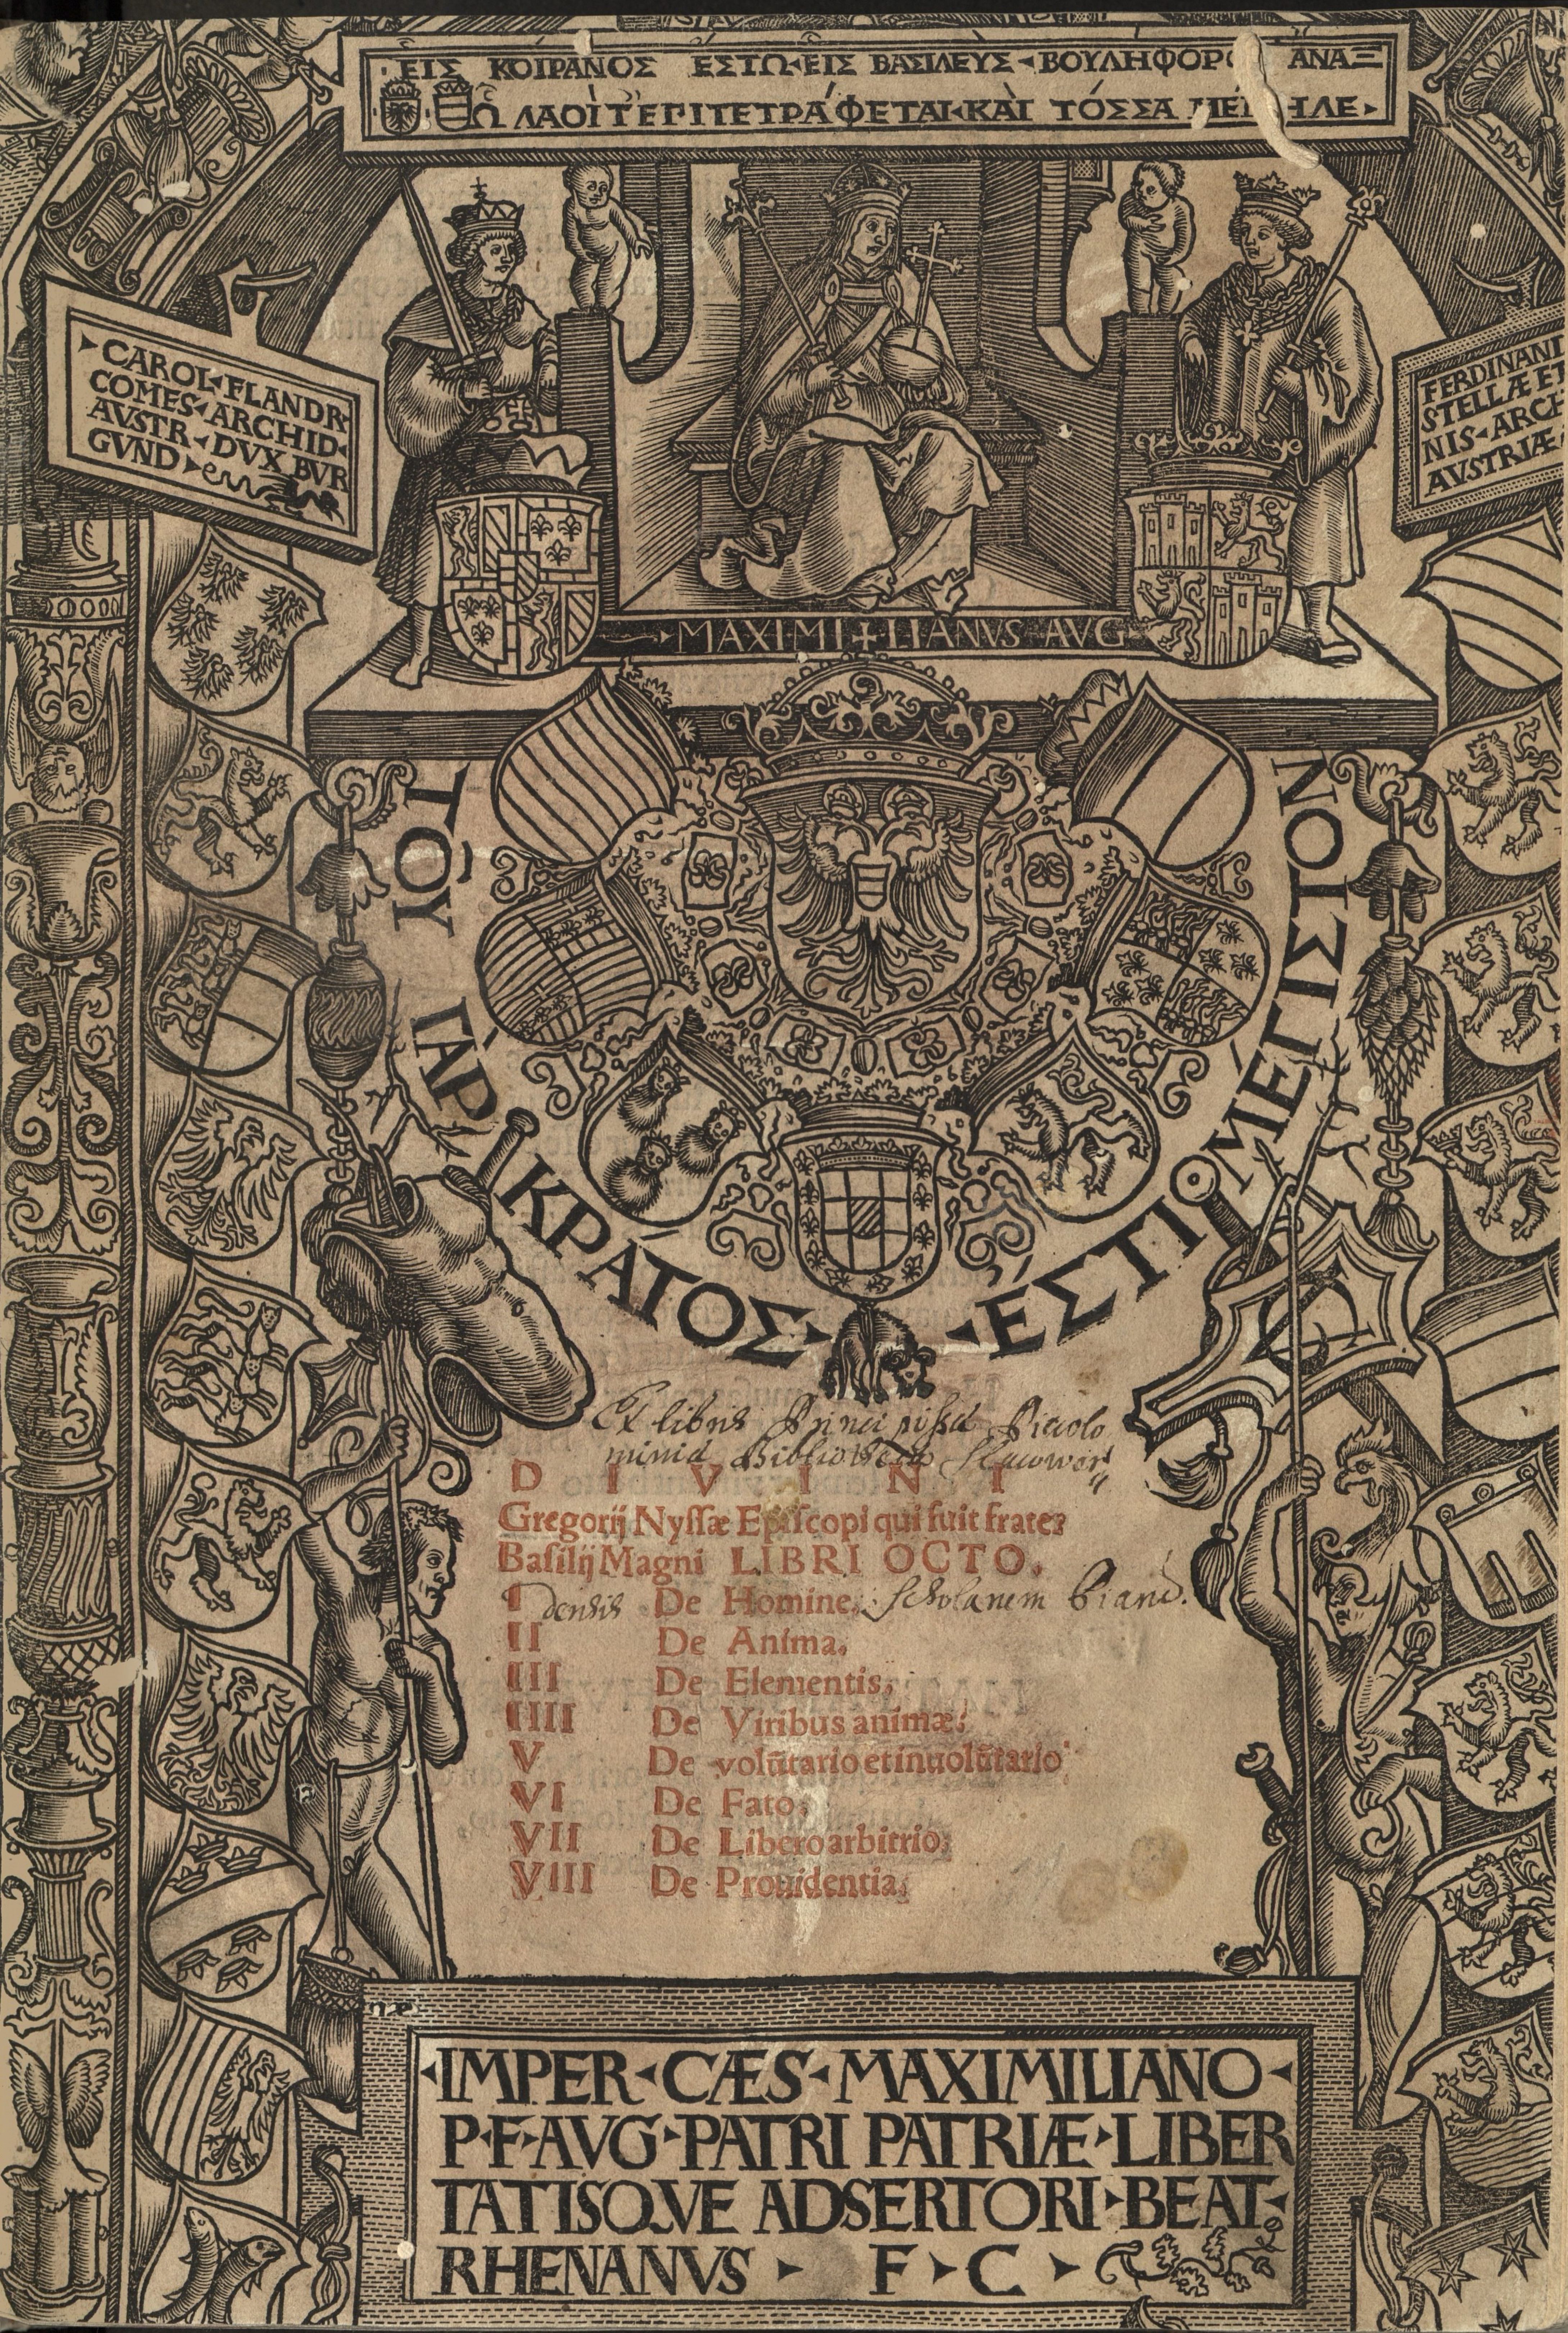 ΕἸΣ ΚΟΙΡΑΝΟΣ ΕΣΤΩ ΕἸΣ ΒΑΣΙΛΕΥΣ ΒΟΥΛΗΦΟΡΟ ΑΝΑΞ
Ὧ ΛΑΟΙ ΤΕΠΙΤΕΤΡΑΦΕΤΑΙ ΚΑΙ ΤΟΣΣΑ ΜΕΜΗΛΕ
CAROL FLANDR
COMES ARCHID
AVSTR DVX BVR
GVND
FERDINAND
STELLÆ ET
NIS ARCH
AVSTRIÆ
MAXIMI LIANVS AVG
ΤΟΥ͂ ΓᾺΡ ΚΡΆΤΟΣ ἘΣΤῚ ΜΈΓΙΣΤΟΝ
Ex libris Principissa Piccolo
minia Bibliotheca Slacowor
D I V I N I
Gregorij Nyssæ Episcopi qui fuit frater
Basilij Magni LIBRI OCTO.
I densis De Homine. Scholarum Piarū.
II De Anima.
III De Elementis.
IIII De Viribus animæ.
V De volūtario et inuolūtario
VI De Fato.
VII De Libero arbitrio.
VIII De Prouidentia.
IMPER CÆS MAXIMILIANO
P F AVG PATRI PATRIÆ LIBER
TATISQVE ADSERTORI BEAT
RHENANVS F C